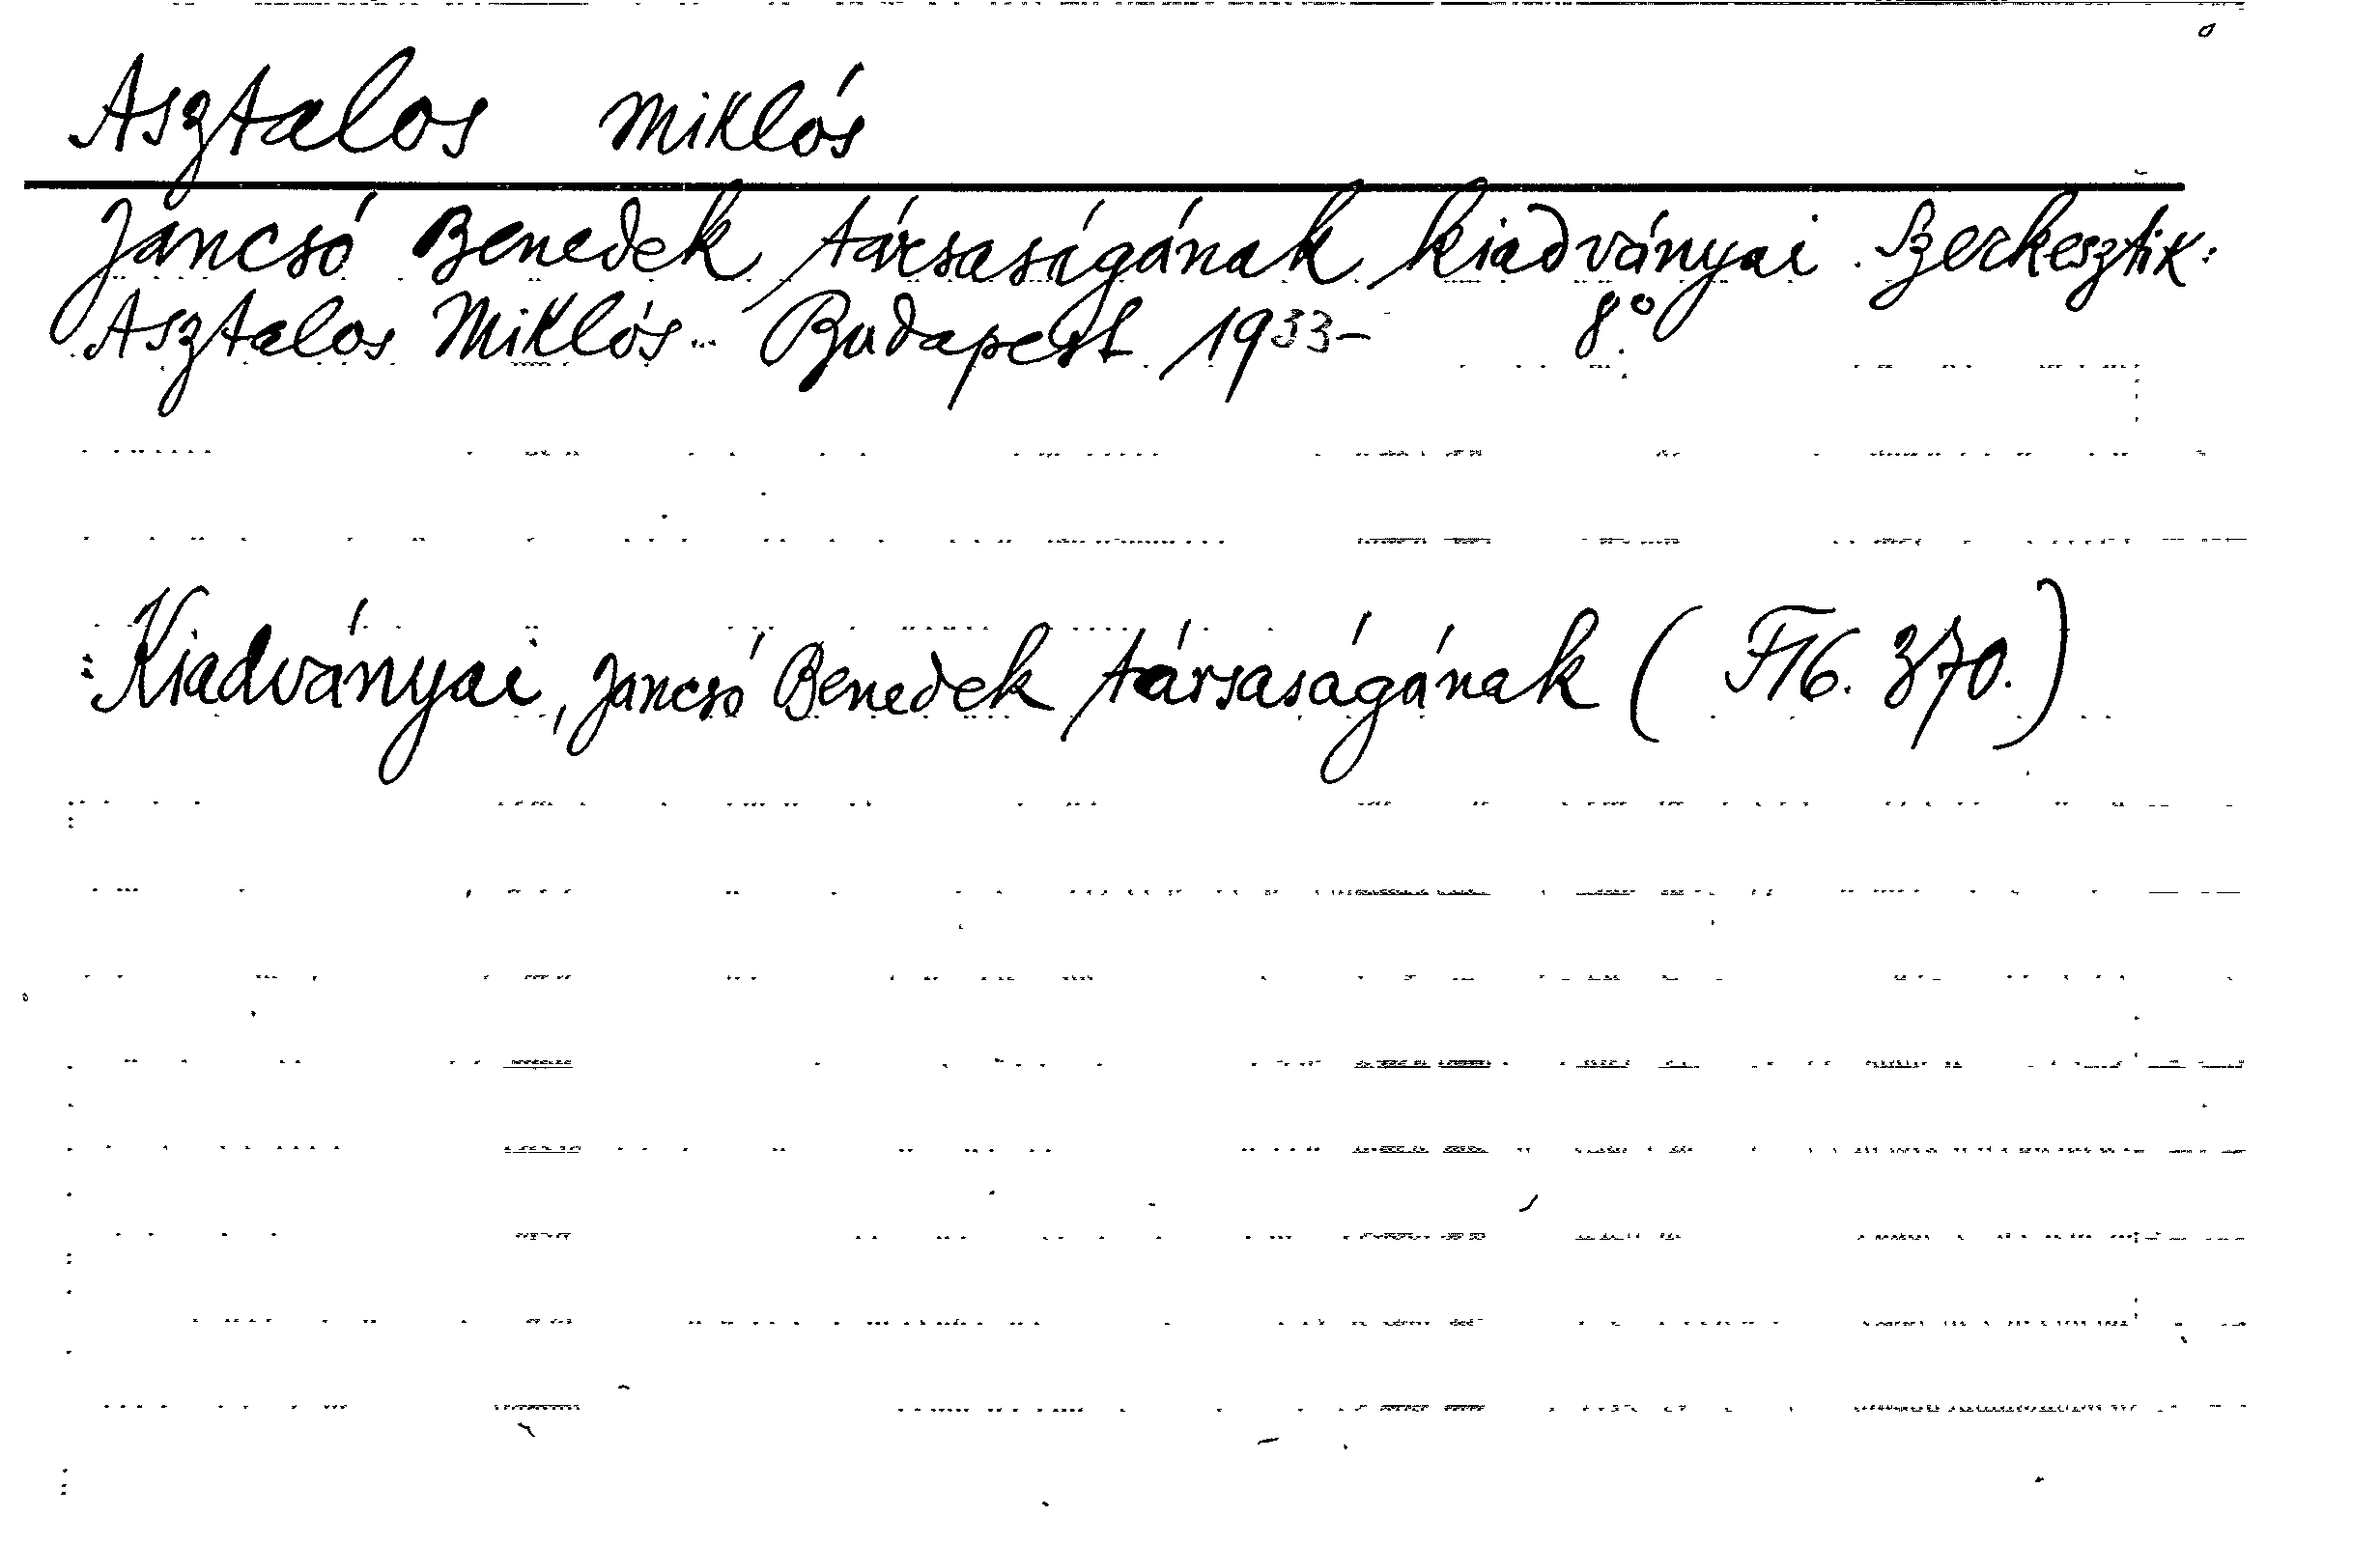 Asztalos Miklós
Jancsó Benedek társaságának kiadványai. Szerkesztik:
Asztalos Miklós... Budapest 1933- 8°
Kiadványai, Jancsó Benedek társaságának (F16. 370.)